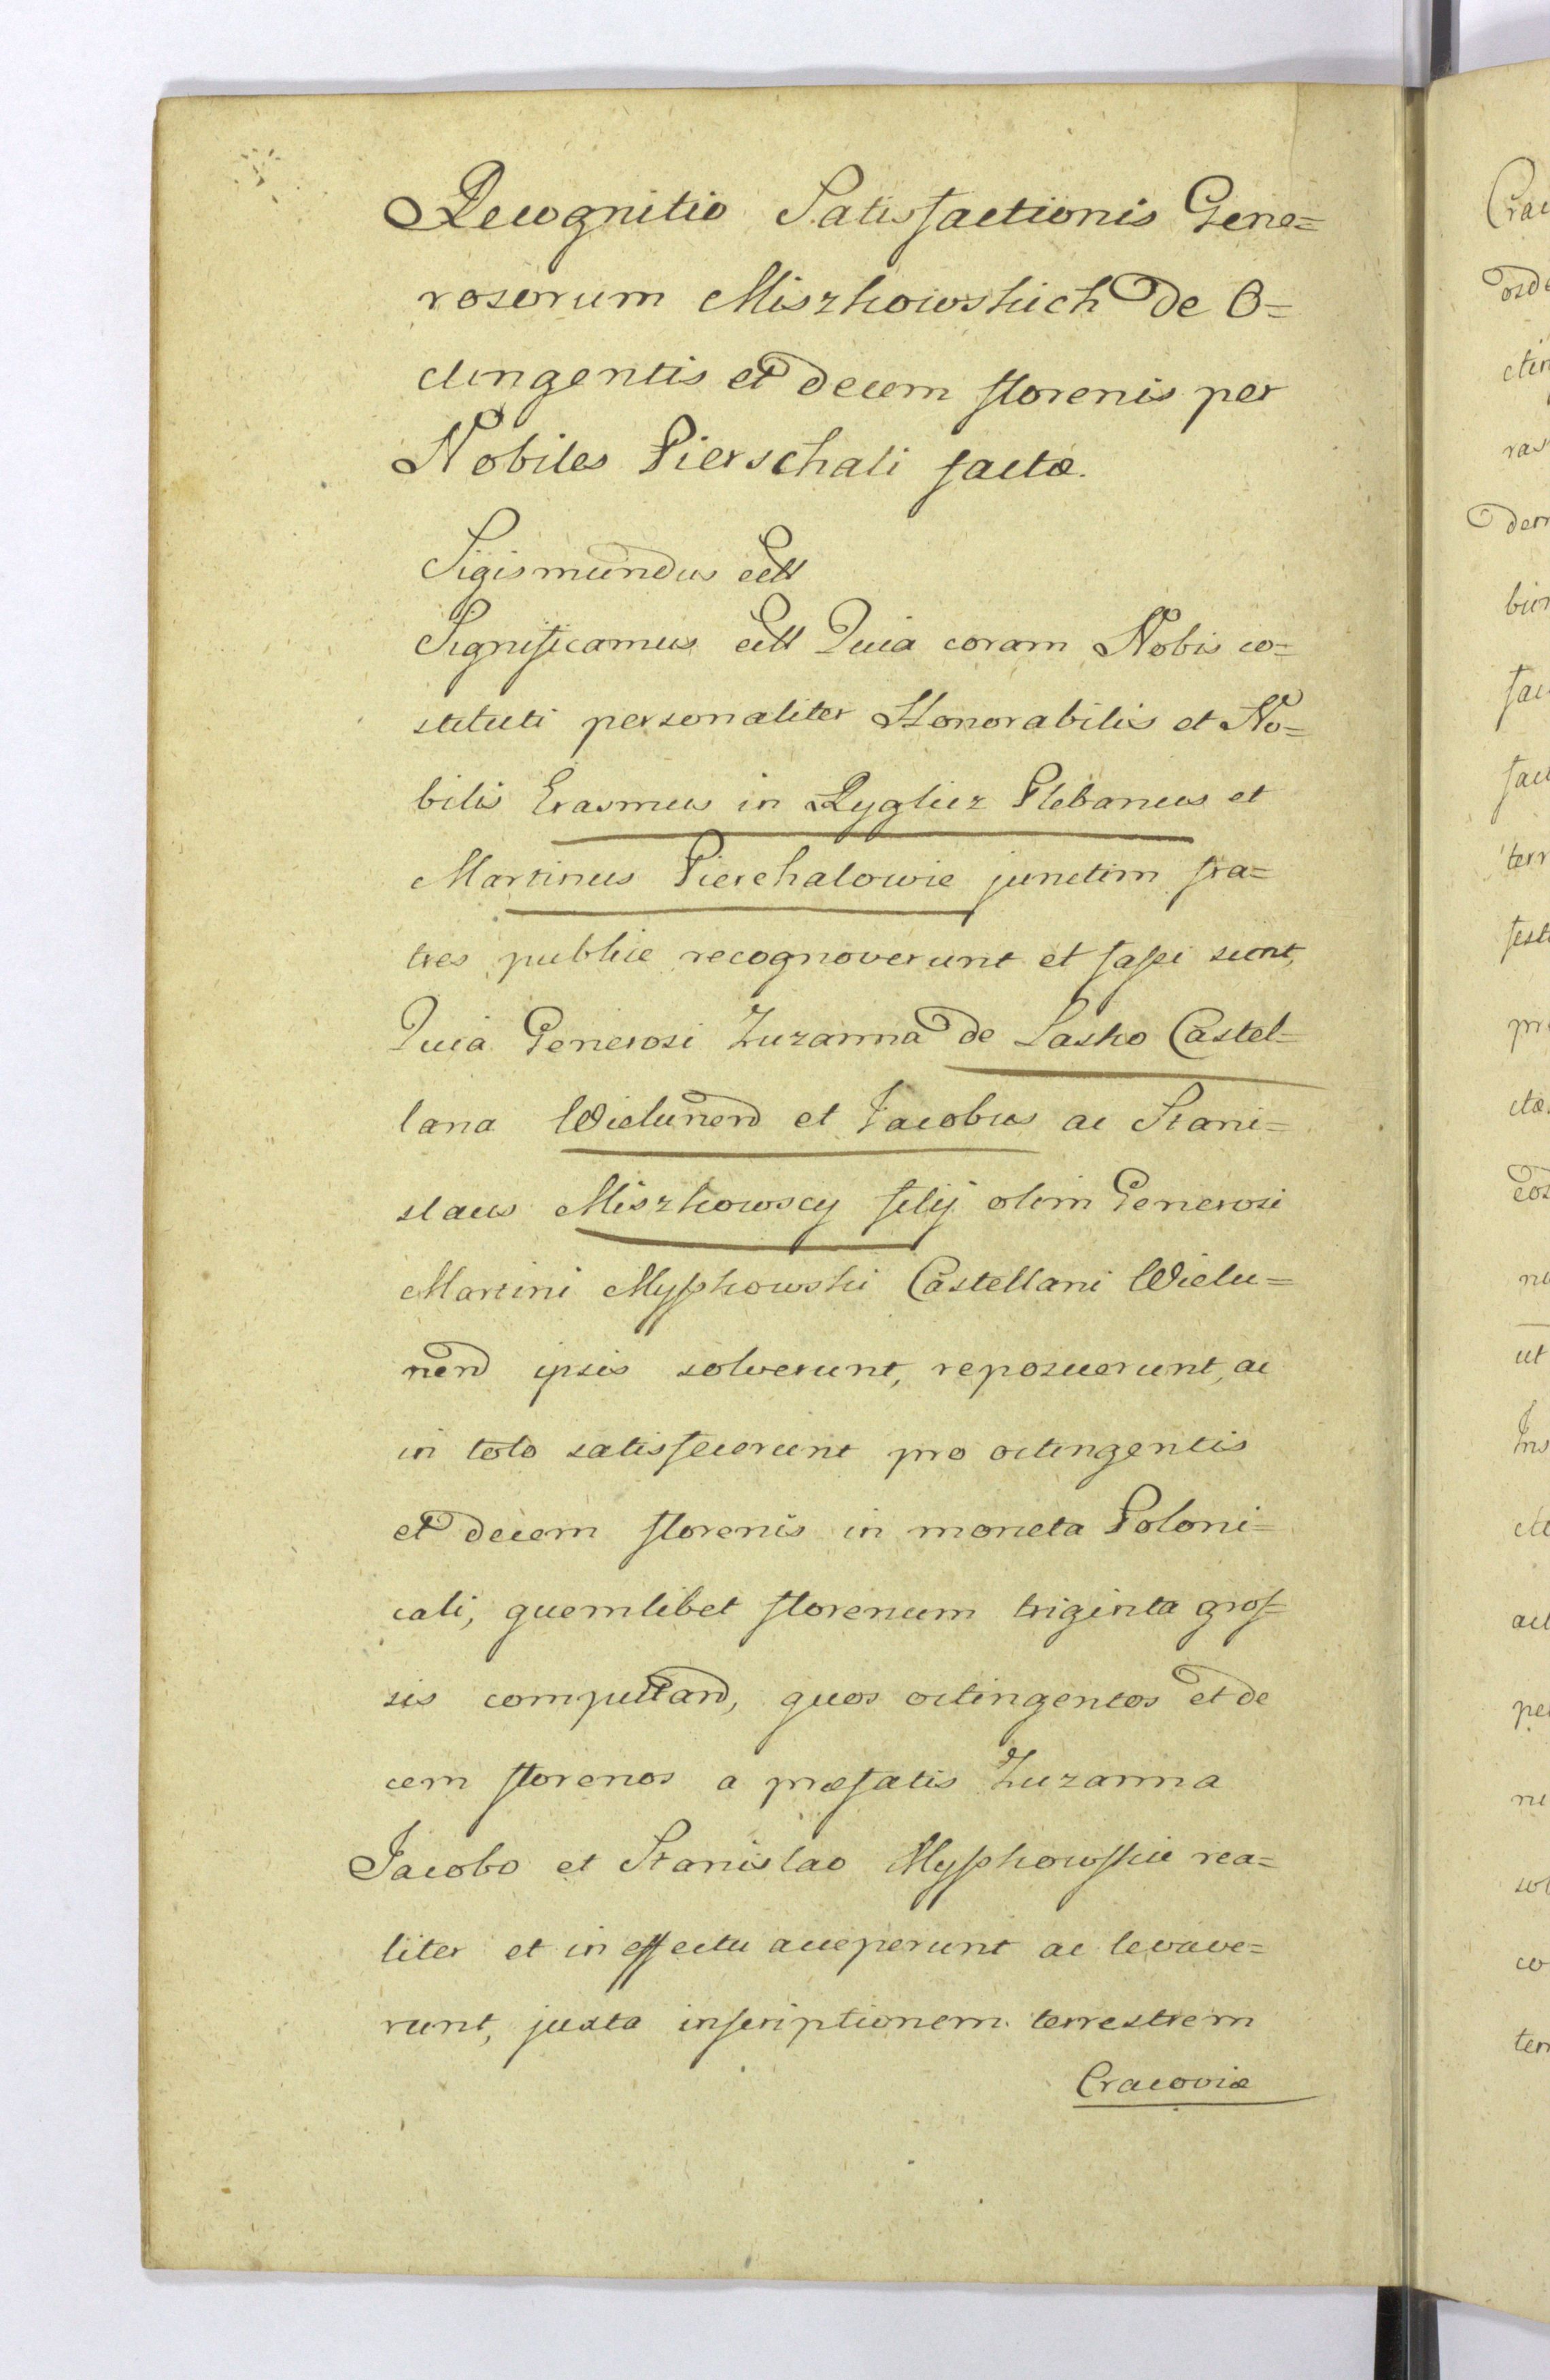 Recognitio Satisfactionis Gene=
rosorum Miszkowskich de O=
ctingentis et decem florenis per
Nobiles Pierschali factæ.
Sigismundus etct
Significamus etct Quia coram Nobis co=
stituti personaliter Honorabilis et No=
bilis Erasmus in Ryglicz Plebanus et
Martinus Pierchalowie junctim fra=
tres publice recognoverunt et faſsi sunt,
Quia Generosi Zuzanna de Lasko Castel=
lana Wielunen et Jacobus ac Stani=
slaus Miszkowscy filij olim Generosi
Martini Myſzkowski Castellani Wielu=
nen ipsis solverunt, reposuerunt, ac
in toto satisfecerunt pro octingentis
et decem florenis in moneta Poloni=
cali, quemlibet florenum triginta groſ=
sis computtand, quos octingentos et de
cem florenos a præfatis Zuzanna
Jacobo et Stanislao Myſzkowſkie rea=
liter et in effectu acceperunt ac levave=
runt, juxta inſcriptionem terrestrem
Cracoviæ
Crac
orde
ctin
ras
dem
bun
fac
fac
terr
fest
pr
ctæ
eos
ne
ut
Ins
cti
act
per
ni
sol
co
terr